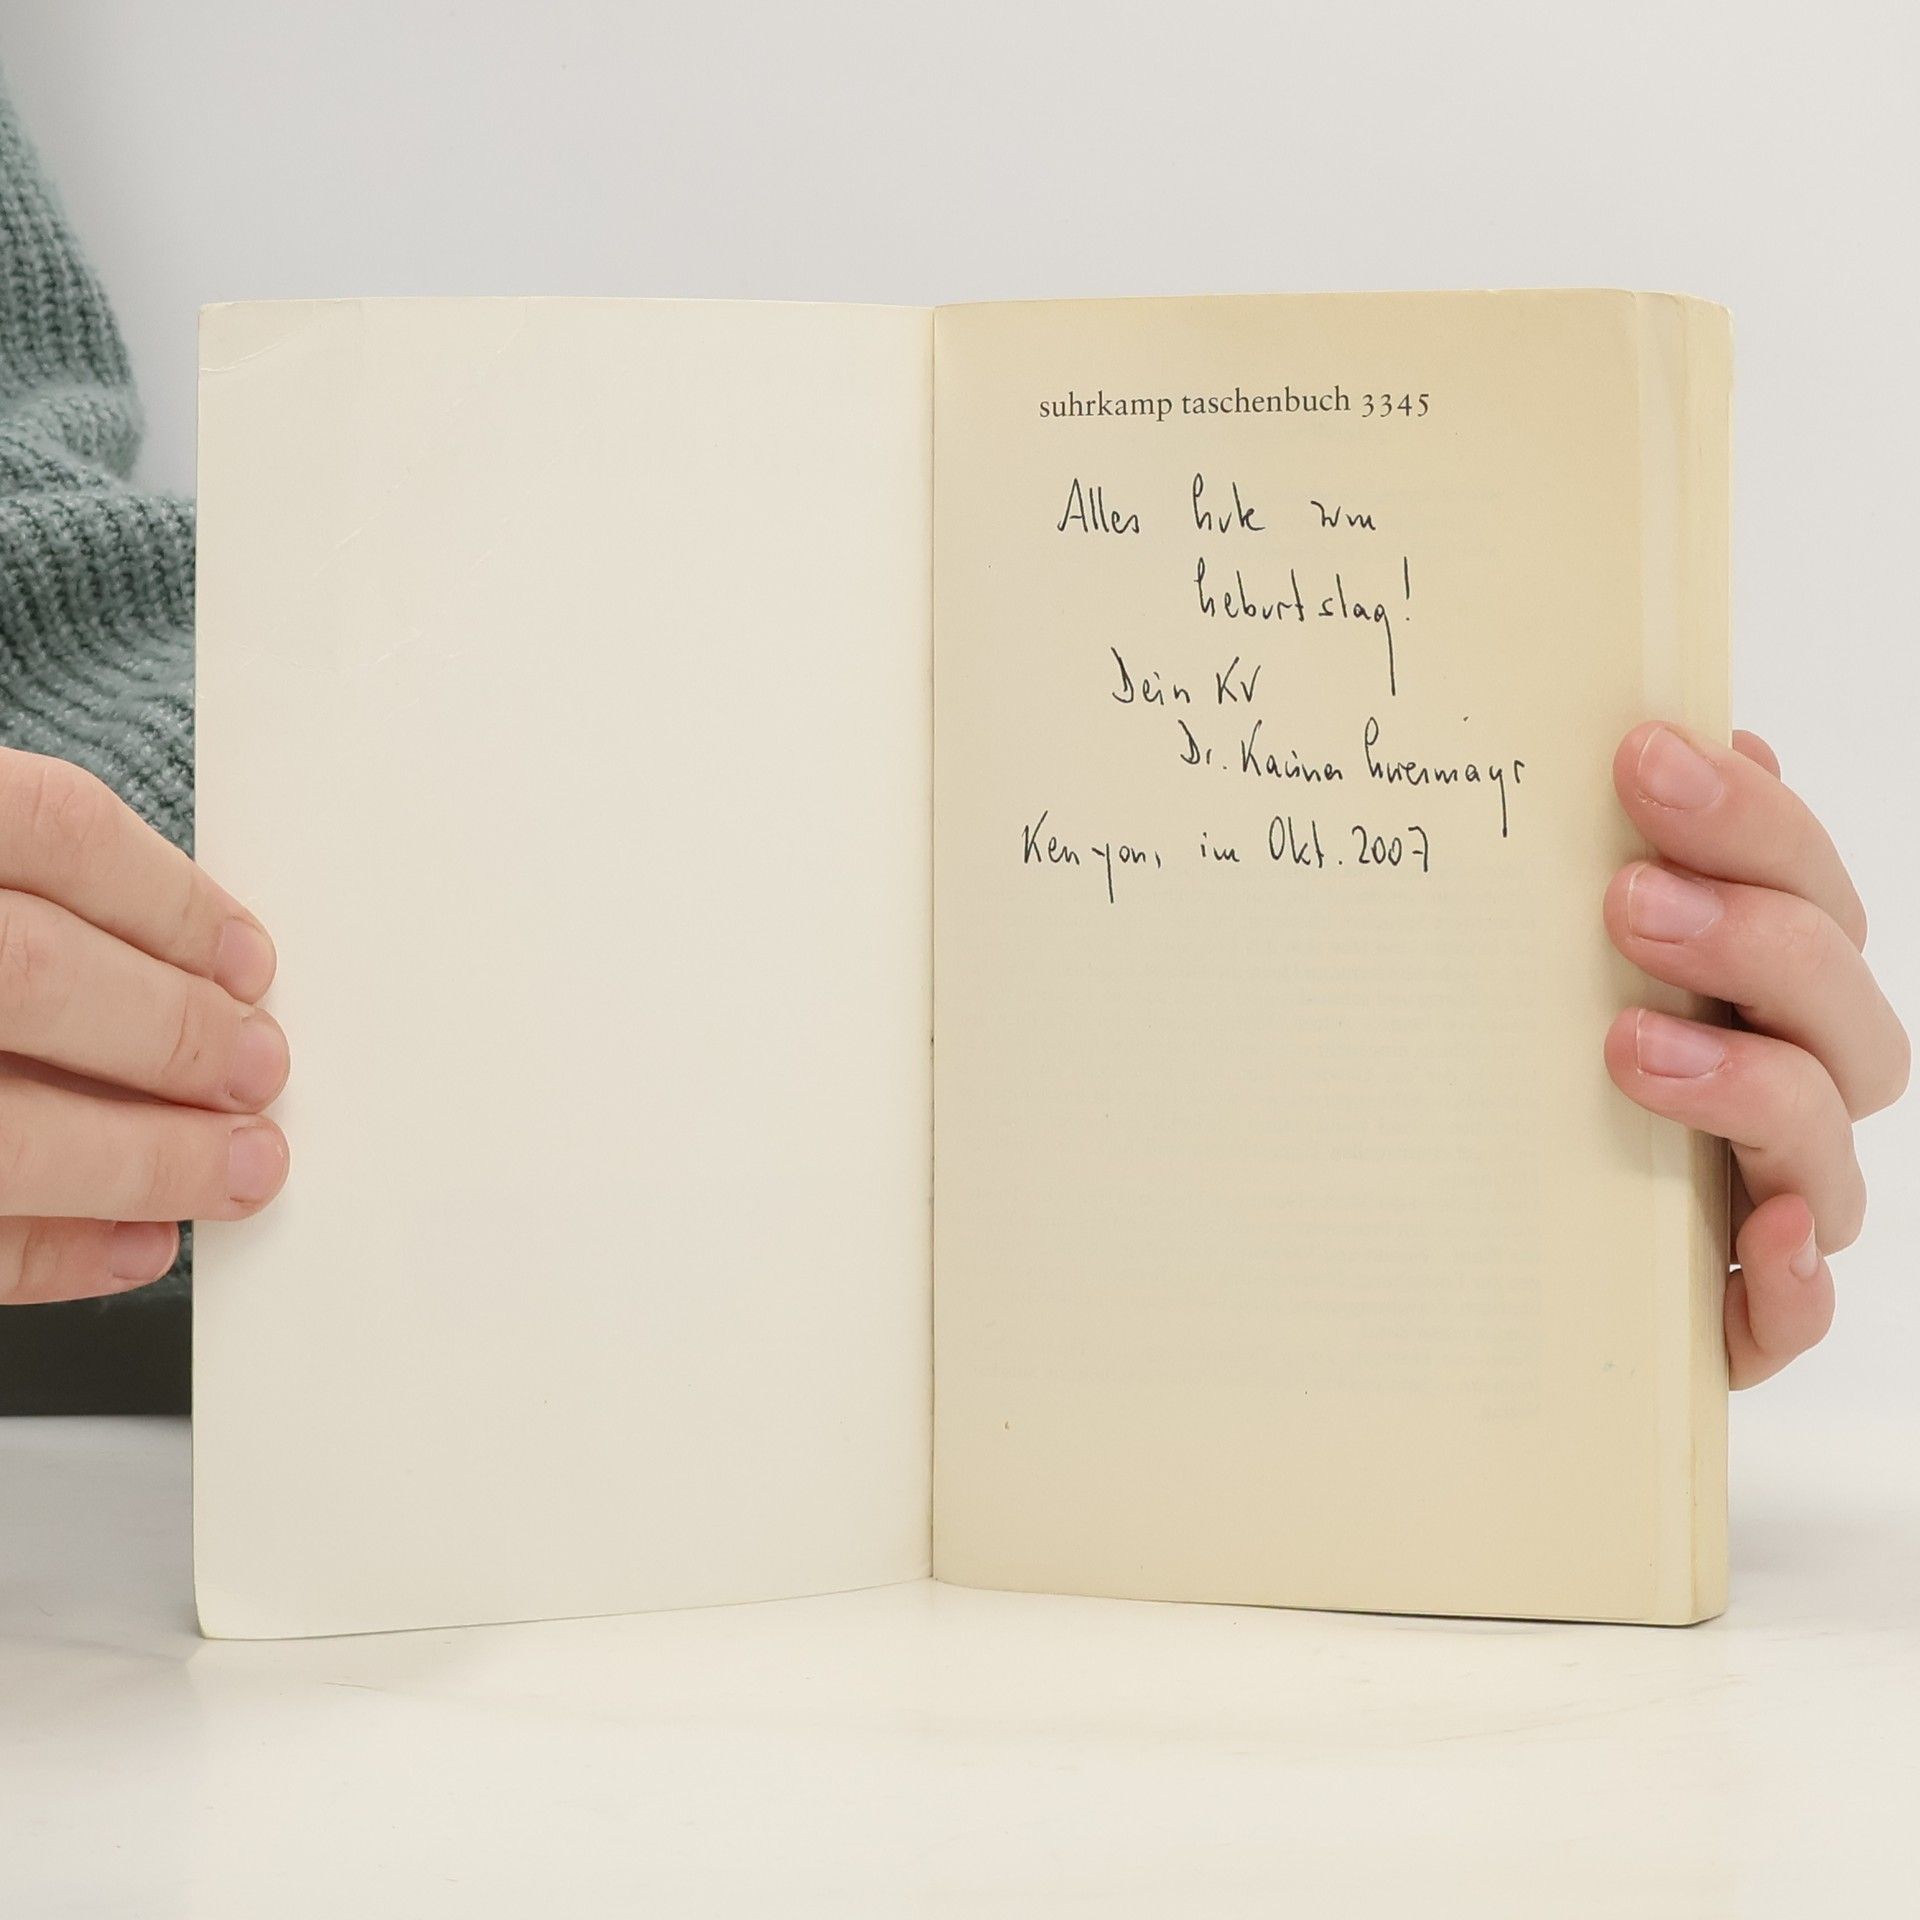 suhrkamp taschenbuch 3345
Alles Gute zum
Geburtstag!
Dein KV
Dr. Karina
Kenyon, im Okt. 2007